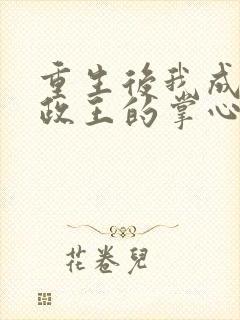 重生後我成
政王的掌心
花卷兒